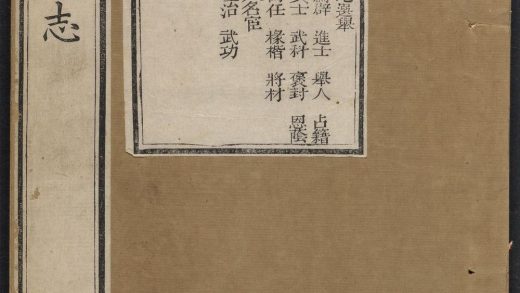 選舉
辟 進士 舉人 占籍
士 武科 褒封 恩蔭
任 掾楷 將材
名宦
治 武功
志